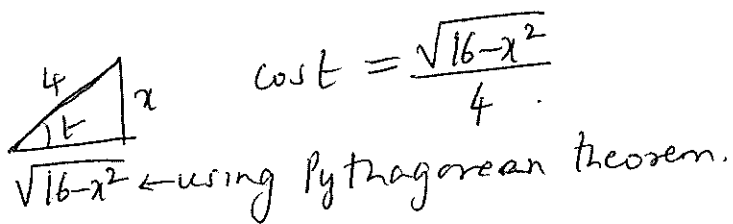 4 x t cos t = √(16-x²)/4.
√(16-x²) ← using Pythagorean theorem.